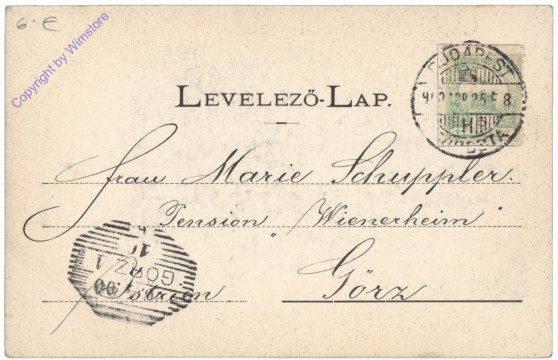 6.- €
Copyright by Wimstore
LEVELEZŐ-LAP.
BUDAPEST
Frau Marie Schuppler.
Pension "Wienerheim"
Görz
Istrien
GÖRZ 1
00